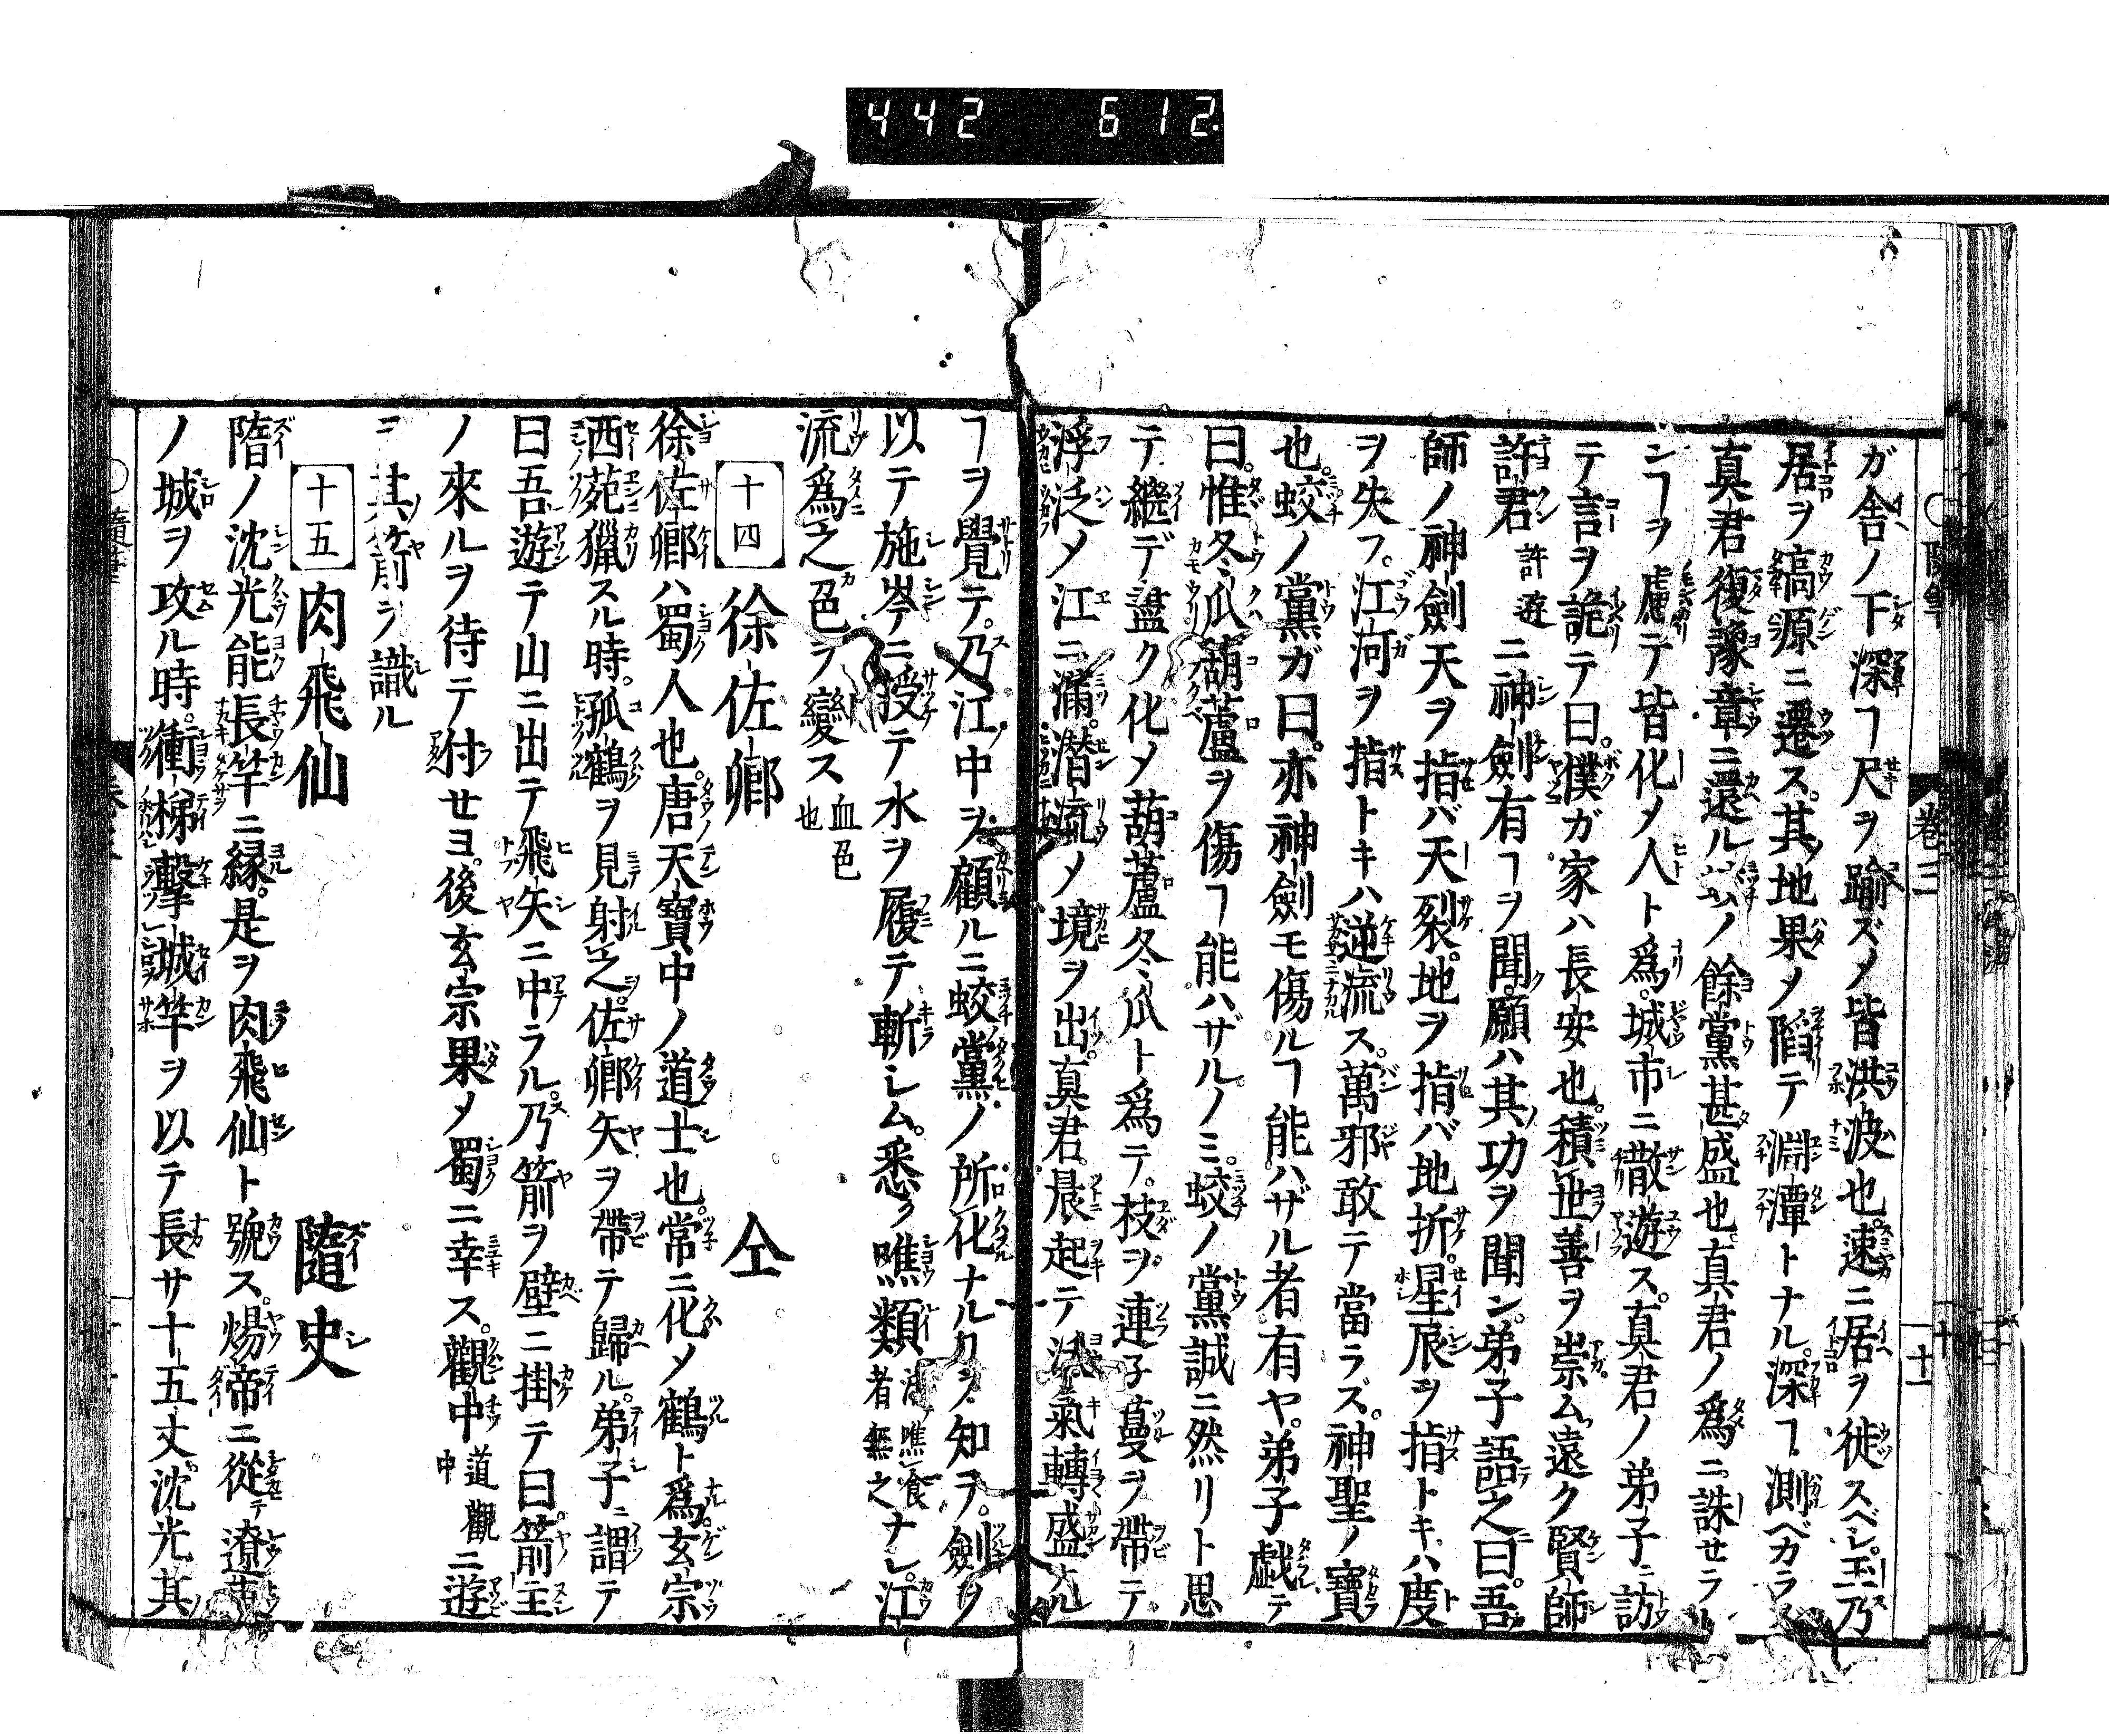 442 612
ガ舎ノ下深ヿ尺ヲ踰ズメ皆洪波也速ニ居ヲ徙スベシ玉乃
居ヲ縞源ニ遷ス其地果メ䧟テ淵潭トナル深ヿ測ベガラ
真君復豫章ニ還ルノ餘黨甚盛也真君ノ爲ニ誅セラル
シヿヲ慮テ皆化メ人ト爲城市ニ散遊ス真君ノ弟子ニ訪
テ言ヲ詭テ曰僕ガ家ハ長安也積世善ヲ崇ム遠ク賢師
許君許遊ニ神劍有ヿヲ聞願ハ其功ヲ聞ン弟子語之曰吾
師ノ神劍天ヲ指バ天裂地ヲ指バ地折星辰ヲ指トキハ度
ヲ失フ江河ヲ指トキハ逆流ス萬邪敢テ當ラズ神聖ノ寶
也蛟ノ黨ガ曰亦神劍モ傷ルヿ能ハザル者有ヤ弟子戯テ
曰惟冬瓜葫蘆ヲ傷ヿ能ハザルノミ蛟ノ黨誠ニ然リト思
テ繼デ盡ク化メ葫蘆冬瓜ト爲テ枝ヲ連子蔓ヲ帶テ
浮泛メ江ニ滿潜流メ境ヲ出真君晨起テ氣轉盛ナル
ヿヲ覺テ乃江中ヲ顧ルニ蛟黨ノ所化ナルヿヲ知ヲ劍ヲ
以テ施岑ニ授テ水ヲ履テ斬シム悉ク噍類噍食者無之ナシ江
流爲之色ヲ變ス血色也
十四 徐佐卿 仝
徐佐卿ハ蜀人也唐天寶中ノ道士也常ニ化メ鶴ト爲玄宗
西苑獵スル時孤鶴ヲ見射之佐卿矢ヲ帶テ歸ル弟子ニ謂テ
曰吾遊テ山ニ出テ飛矢ニ中ラル乃箭ヲ壁ニ掛テ曰箭主
ノ來ルヲ待テ付セヨ後玄宗果メ蜀ニ幸ス觀中道觀中ニ遊
其箭ヲ識ル
十五 肉飛仙 隨史
隋ノ沈光能長竿ニ緣是ヲ肉飛仙ト號ス煬帝ニ從テ遼東
ノ城ヲ攻ル時衝梯擊城竿ヲ以テ長サ十五丈沈光其
卷三
十一